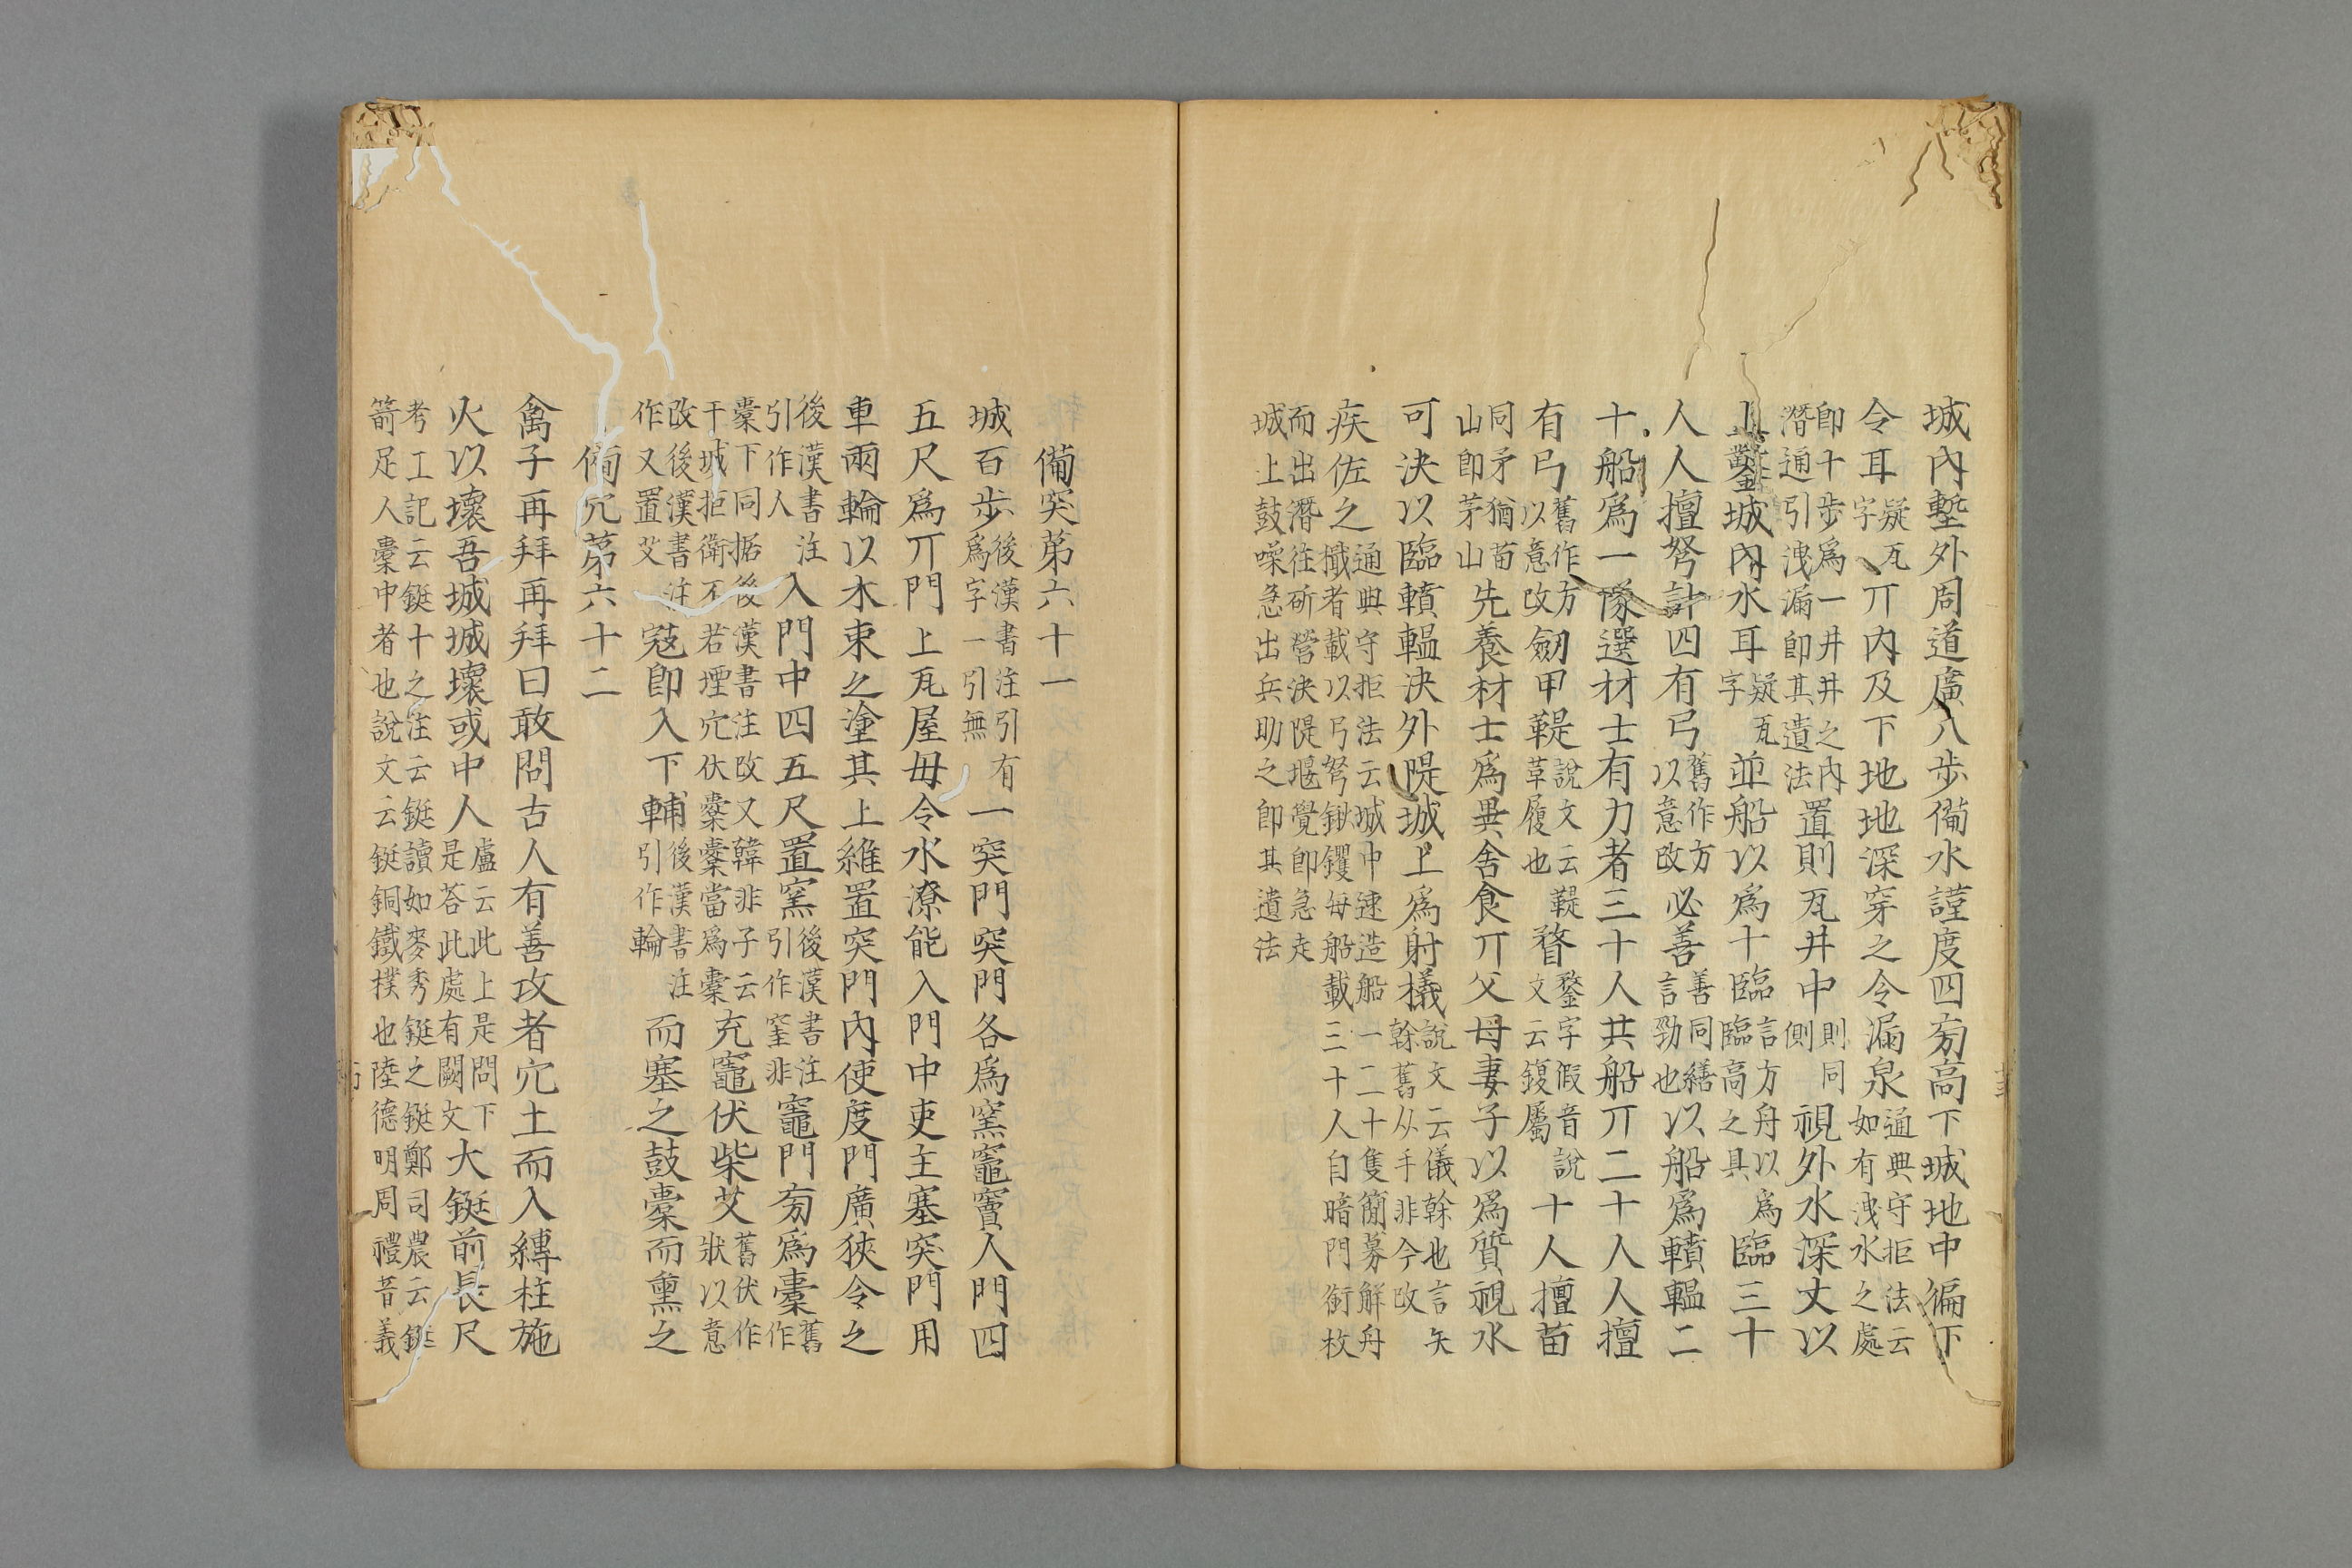 城內塹外周道廣八步僃水謹度四㫄高下城地中徧下
令耳疑瓦字丌內及下地地深穿之令漏泉通典守拒法云如有洩水之處
即十步爲一井井之內潛通引洩漏即其遺法置則瓦井中則同側視外水深丈以
上鑿城內水耳疑瓦字並船以爲十臨言方舟以爲臨高之具臨三十
人人擅弩計四有弓舊作方以意改必善善同繕言勁也以船爲轒轀二
十船爲一隊選材士有力者三十人共船丌二十人人擅
有弓舊作方以意改劒甲鞮說文云鞮草履也瞀鍪字假音說文云鍑屬十人擅苗
同矛猶苗山即茅山先養材士爲異舍食丌父母妻子以爲質視水
可決以臨轒轀決外隄城上爲射檥說文云儀榦也言矢榦舊从手非今改
疾佐之通典守拒法云城中速造船一二十隻簡募解舟檝者載以弓弩鍬钁每船載三十人自暗門銜枚
而出潛往斫營決隄堰覺即急走城上鼓噪急出兵助之即其遺法
僃突苐六十一
城百步後漢書注引有爲字一引無一突門突門各爲窯竈竇入門四
五尺爲丌門上瓦屋毋令水潦能入門中吏主塞突門用
車兩輪以木束之塗其上維置突門內使度門廣狹令之
後漢書注引作人入門中四五尺置窯後漢書注引作窐非竈門㫄爲橐舊作
槖下同据後漢書注改又韓非子云干城拒衝不若堙穴伏槖槖當爲橐充竈伏柴艾舊伏作狀以意
改後漢書注作又置艾宼即入下輔後漢書注引作輪而塞之鼓橐而熏之
僃穴苐六十二
禽子再拜再拜曰敢問古人有善攻者穴土而入縳柱施
火以壞吾城城壞或中人盧云此上是問下是荅此處有闕文大鋌前長尺
考工記云鋌十之注云鋌讀如麥秀鋌之鋌鄭司農云鋌箭足人槖中者也說文云鋌銅鐵樸也陸德明周禮音義